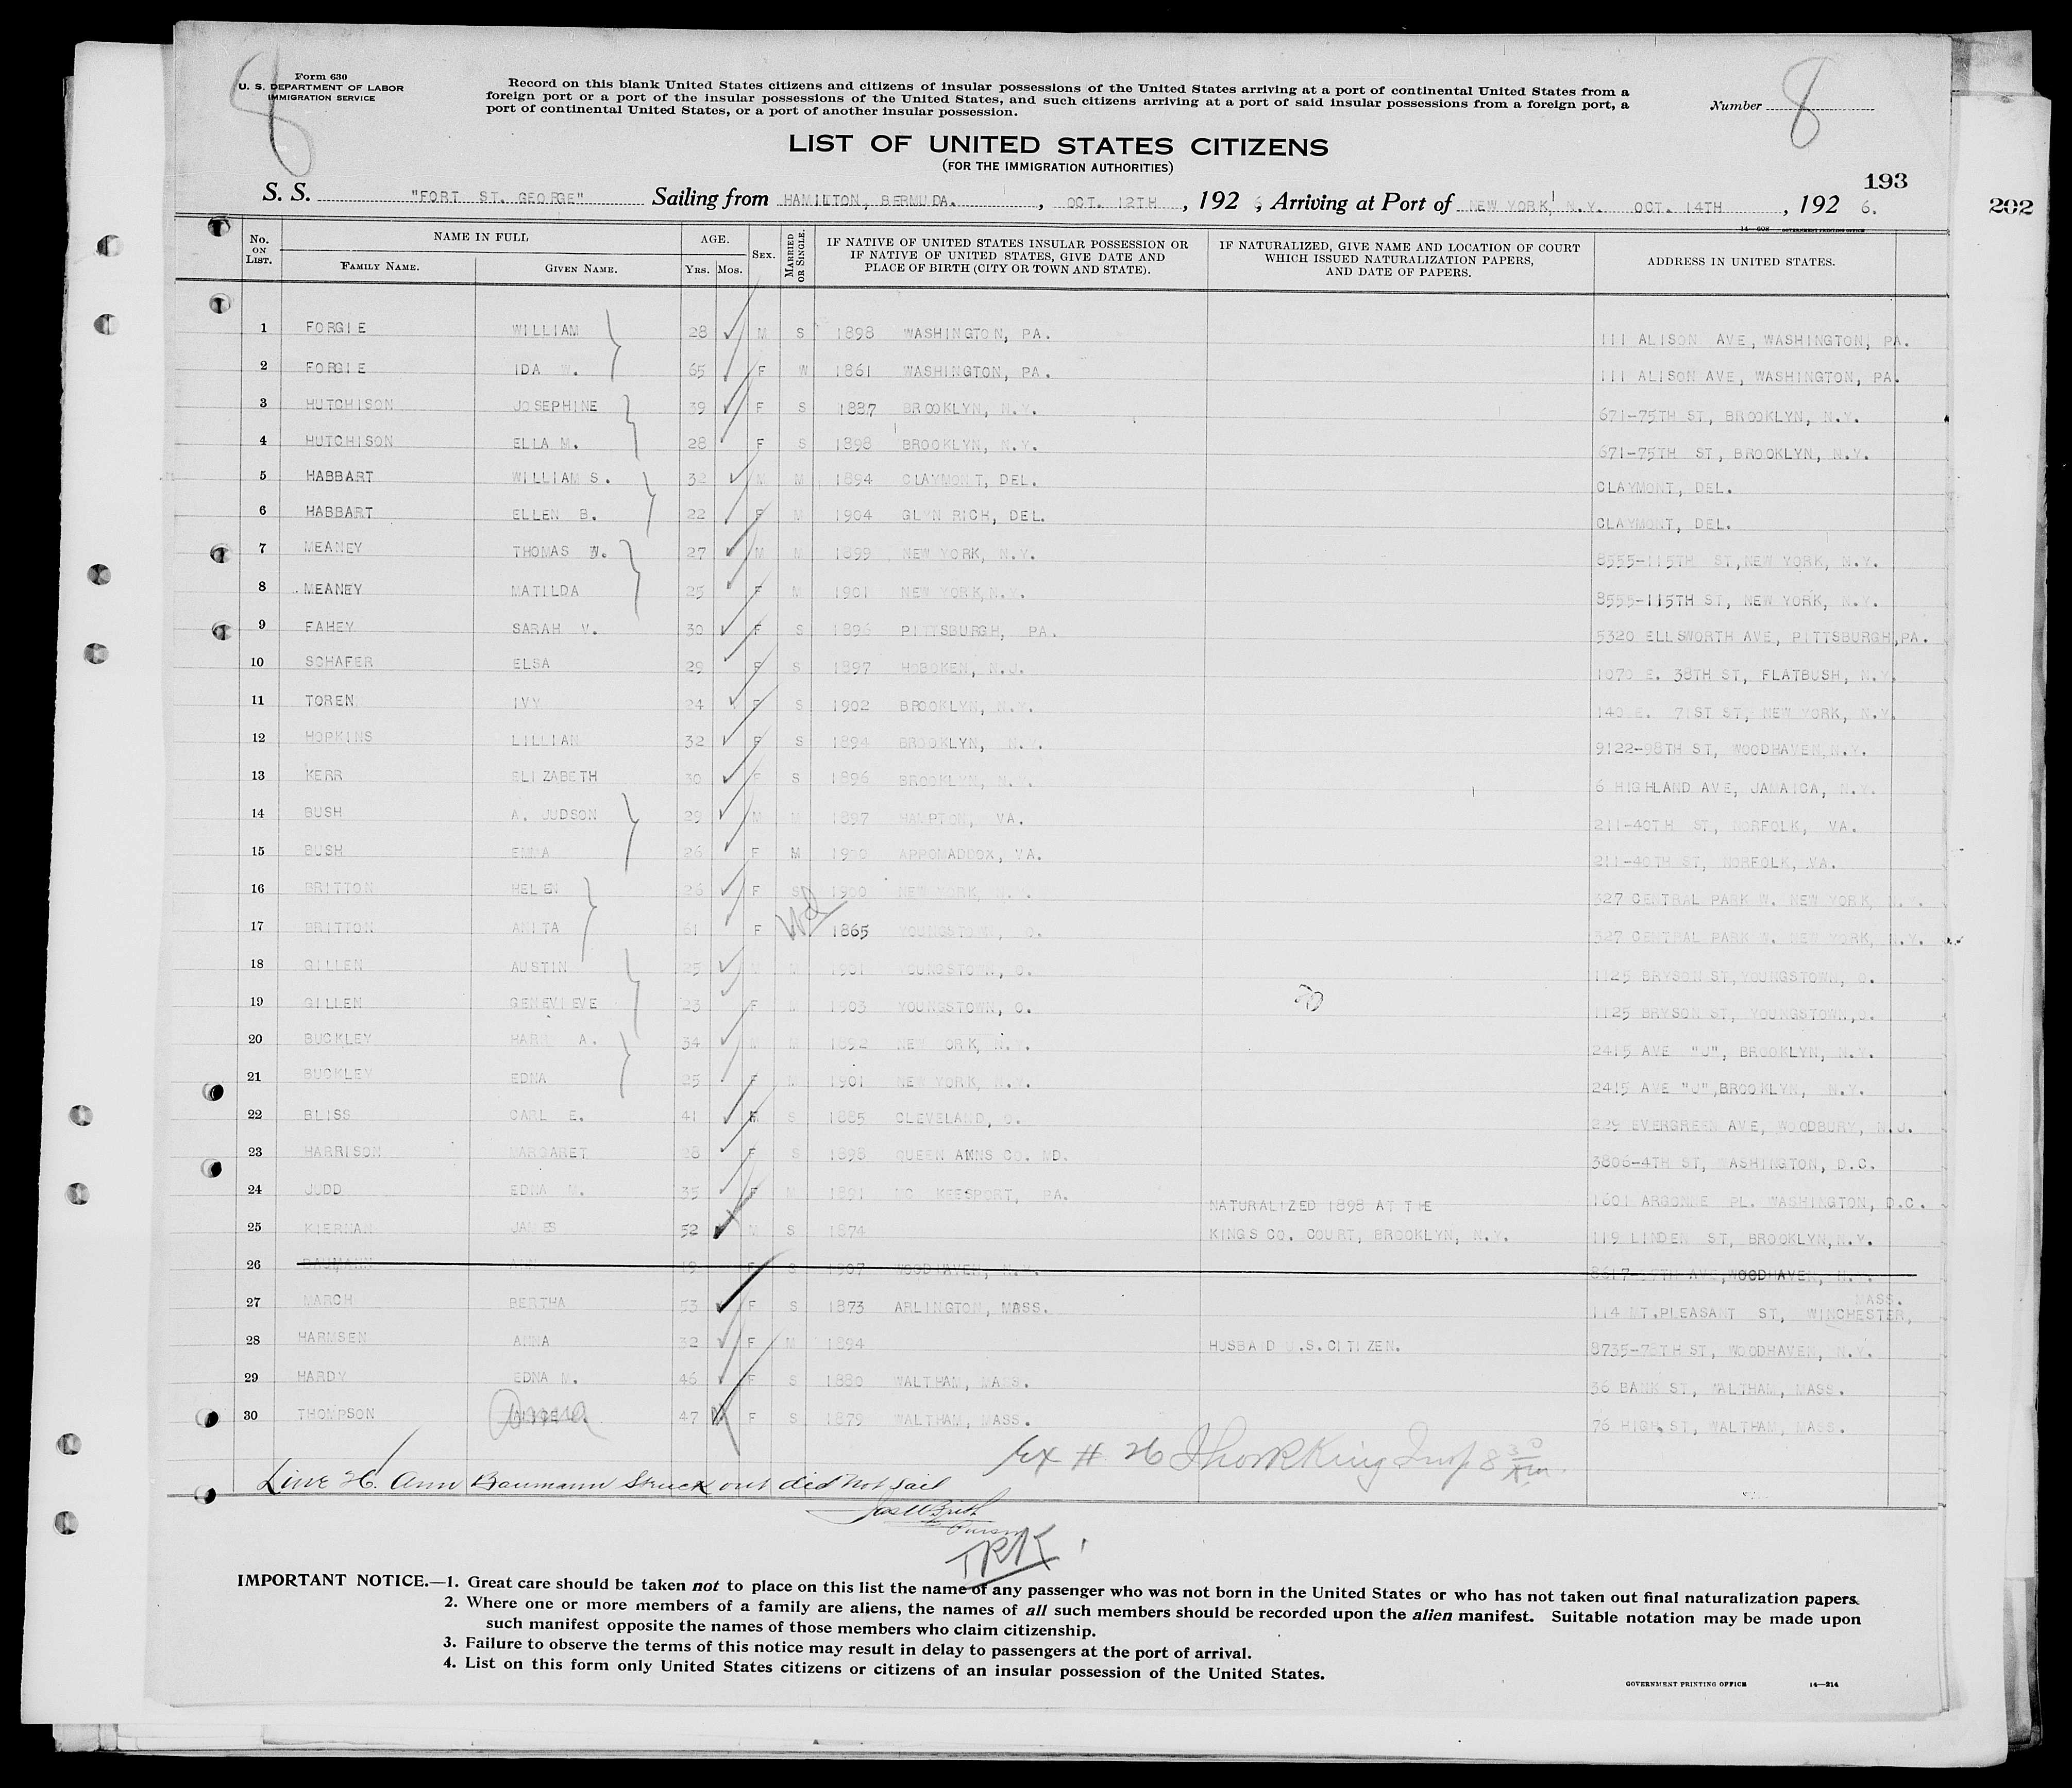 Form 630
U. S. DEPARTMENT OF LABOR
IMMIGRATION SERVICE
8
Record on this blank United States citizens and citizens of insular possessions of the United States arriving at a port of continental United States from a
foreign port or a port of the insular possessions of the United States, and such citizens arriving at a port of said insular possessions from a foreign port, a
port of continental United States, or a port of another insular possession.
Number 8
LIST OF UNITED STATES CITIZENS
(FOR THE IMMIGRATION AUTHORITIES)
193
202
S. S. "FORT ST. GEORGE" Sailing from HAMILTON, BERMUDA. , OCT. 12TH , 192 6, Arriving at Port of NEW YORK, N.Y. OCT. 14TH , 192 6.
14—608 GOVERNMENT PRINTING OFFICE
No. ON LIST. NAME IN FULL FAMILY NAME. GIVEN NAME. AGE. YRS. MOS. SEX. MARRIED OR SINGLE. IF NATIVE OF UNITED STATES INSULAR POSSESSION OR IF NATIVE OF UNITED STATES, GIVE DATE AND PLACE OF BIRTH (CITY OR TOWN AND STATE). IF NATURALIZED, GIVE NAME AND LOCATION OF COURT WHICH ISSUED NATURALIZATION PAPERS, AND DATE OF PAPERS. ADDRESS IN UNITED STATES.
1 FORGIE WILLIAM 28 M S 1898 WASHINGTON, PA. 111 ALISON AVE, WASHINGTON, PA.
2 FORGIE IDA W. 65 F W 1861 WASHINGTON, PA. 111 ALISON AVE, WASHINGTON, PA.
3 HUTCHISON JOSEPHINE 39 F S 1887 BROOKLYN, N.Y. 671-75TH ST, BROOKLYN, N.Y.
4 HUTCHISON ELLA M. 28 F S 1898 BROOKLYN, N.Y. 671-75TH ST, BROOKLYN, N.Y.
5 HABBART WILLIAM S. 32 M M 1894 CLAYMONT, DEL. CLAYMONT, DEL.
6 HABBART ELLEN B. 22 F M 1904 GLYN RICH, DEL. CLAYMONT, DEL.
7 MEANEY THOMAS W. 27 M M 1899 NEW YORK, N.Y. 8555-115TH ST, NEW YORK, N.Y.
8 MEANEY MATILDA 25 F M 1901 NEW YORK, N.Y. 8555-115TH ST, NEW YORK, N.Y.
9 FAHEY SARAH V. 30 F S 1896 PITTSBURGH, PA. 5320 ELLSWORTH AVE, PITTSBURGH, PA.
10 SCHAFER ELSA 29 F S 1897 HOBOKEN, N.J. 1070 E. 38TH ST, FLATBUSH, N.Y.
11 TOREN IVY 24 F S 1902 BROOKLYN, N.Y. 140 E. 71ST ST, NEW YORK, N.Y.
12 HOPKINS LILLIAN 32 F S 1894 BROOKLYN, N.Y. 9122-98TH ST, WOODHAVEN, N.Y.
13 KERR ELIZABETH 30 F S 1896 BROOKLYN, N.Y. 6 HIGHLAND AVE, JAMAICA, N.Y.
14 BUSH A. JUDSON 29 M M 1897 HAMPTON, VA. 211-40TH ST, NORFOLK, VA.
15 BUSH EMMA 26 F M 1900 APPOMADDOX, VA. 211-40TH ST, NORFOLK, VA.
16 BRITTON HELEN 26 F S 1900 NEW YORK, N.Y. 327 CENTRAL PARK W. NEW YORK, N.Y.
17 BRITTON ANITA 61 F Wd 1865 YOUNGSTOWN, O. 327 CENTRAL PARK W. NEW YORK, N.Y.
18 GILLEN AUSTIN 25 M M 1901 YOUNGSTOWN, O. 1125 BRYSON ST, YOUNGSTOWN, O.
19 GILLEN GENEVIEVE 23 F M 1903 YOUNGSTOWN, O. 1125 BRYSON ST, YOUNGSTOWN, O.
20 BUCKLEY HARRY A. 34 M M 1892 NEW YORK, N.Y. 2415 AVE "J", BROOKLYN, N.Y.
21 BUCKLEY EDNA 25 F M 1901 NEW YORK, N.Y. 2415 AVE "J", BROOKLYN, N.Y.
22 BLISS CARL E. 41 M S 1885 CLEVELAND, O. 229 EVERGREEN AVE, WOODBURY, N.J.
23 HARRISON MARGARET 28 F S 1898 QUEEN ANNS CO. MD. 3806-4TH ST, WASHINGTON, D.C.
24 JUDD EDNA M. 35 F M 1891 MC KEESPORT, PA. 1601 ARGONNE PL. WASHINGTON, D.C.
NATURALIZED 1898 AT THE
25 KIERNAN JAMES 52 M S 1874 KINGS CO. COURT, BROOKLYN, N.Y. 119 LINDEN ST, BROOKLYN, N.Y.
26 BAUMANN ANN 19 F S 1907 WOODHAVEN, N.Y. AVE, WOODHAVEN, N.Y.
27 MARCH BERTHA 53 F S 1873 ARLINGTON, MASS. 114 MT. PLEASANT ST, WINCHESTER, MASS.
28 HARMSEN ANNA 32 F M 1894 HUSBAND U.S. CITIZEN. 8735-78TH ST, WOODHAVEN, N.Y.
29 HARDY EDNA M. 46 F S 1880 WALTHAM, MASS. 36 BANK ST, WALTHAM, MASS.
30 THOMPSON Anna 47 F S 1879 WALTHAM, MASS. 76 HIGH ST, WALTHAM, MASS.
Ex # 26 Insp 8 30
Line 26. Ann Baumann Struck out did not sail
Purser
TRK
IMPORTANT NOTICE.—1. Great care should be taken not to place on this list the name of any passenger who was not born in the United States or who has not taken out final naturalization papers.
2. Where one or more members of a family are aliens, the names of all such members should be recorded upon the alien manifest. Suitable notation may be made upon
such manifest opposite the names of those members who claim citizenship.
3. Failure to observe the terms of this notice may result in delay to passengers at the port of arrival.
4. List on this form only United States citizens or citizens of an insular possession of the United States.
GOVERNMENT PRINTING OFFICE 14—214